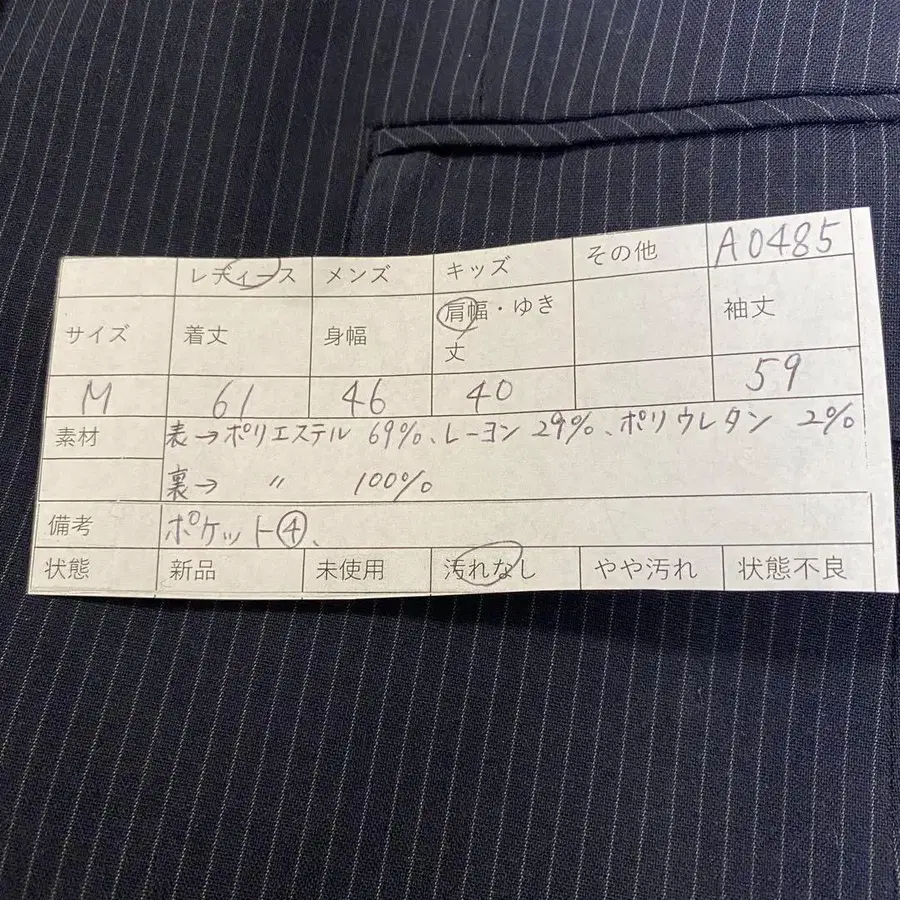 レディース メンズ キッズ その他 A0485
サイズ 着丈 身幅 肩幅・ゆき丈 袖丈
M 61 46 40 59
素材 表→ポリエステル 69%、レーヨン 29%、ポリウレタン 2%
裏→ 〃 100%
備考 ポケット④、
状態 新品 未使用 汚れなし やや汚れ 状態不良